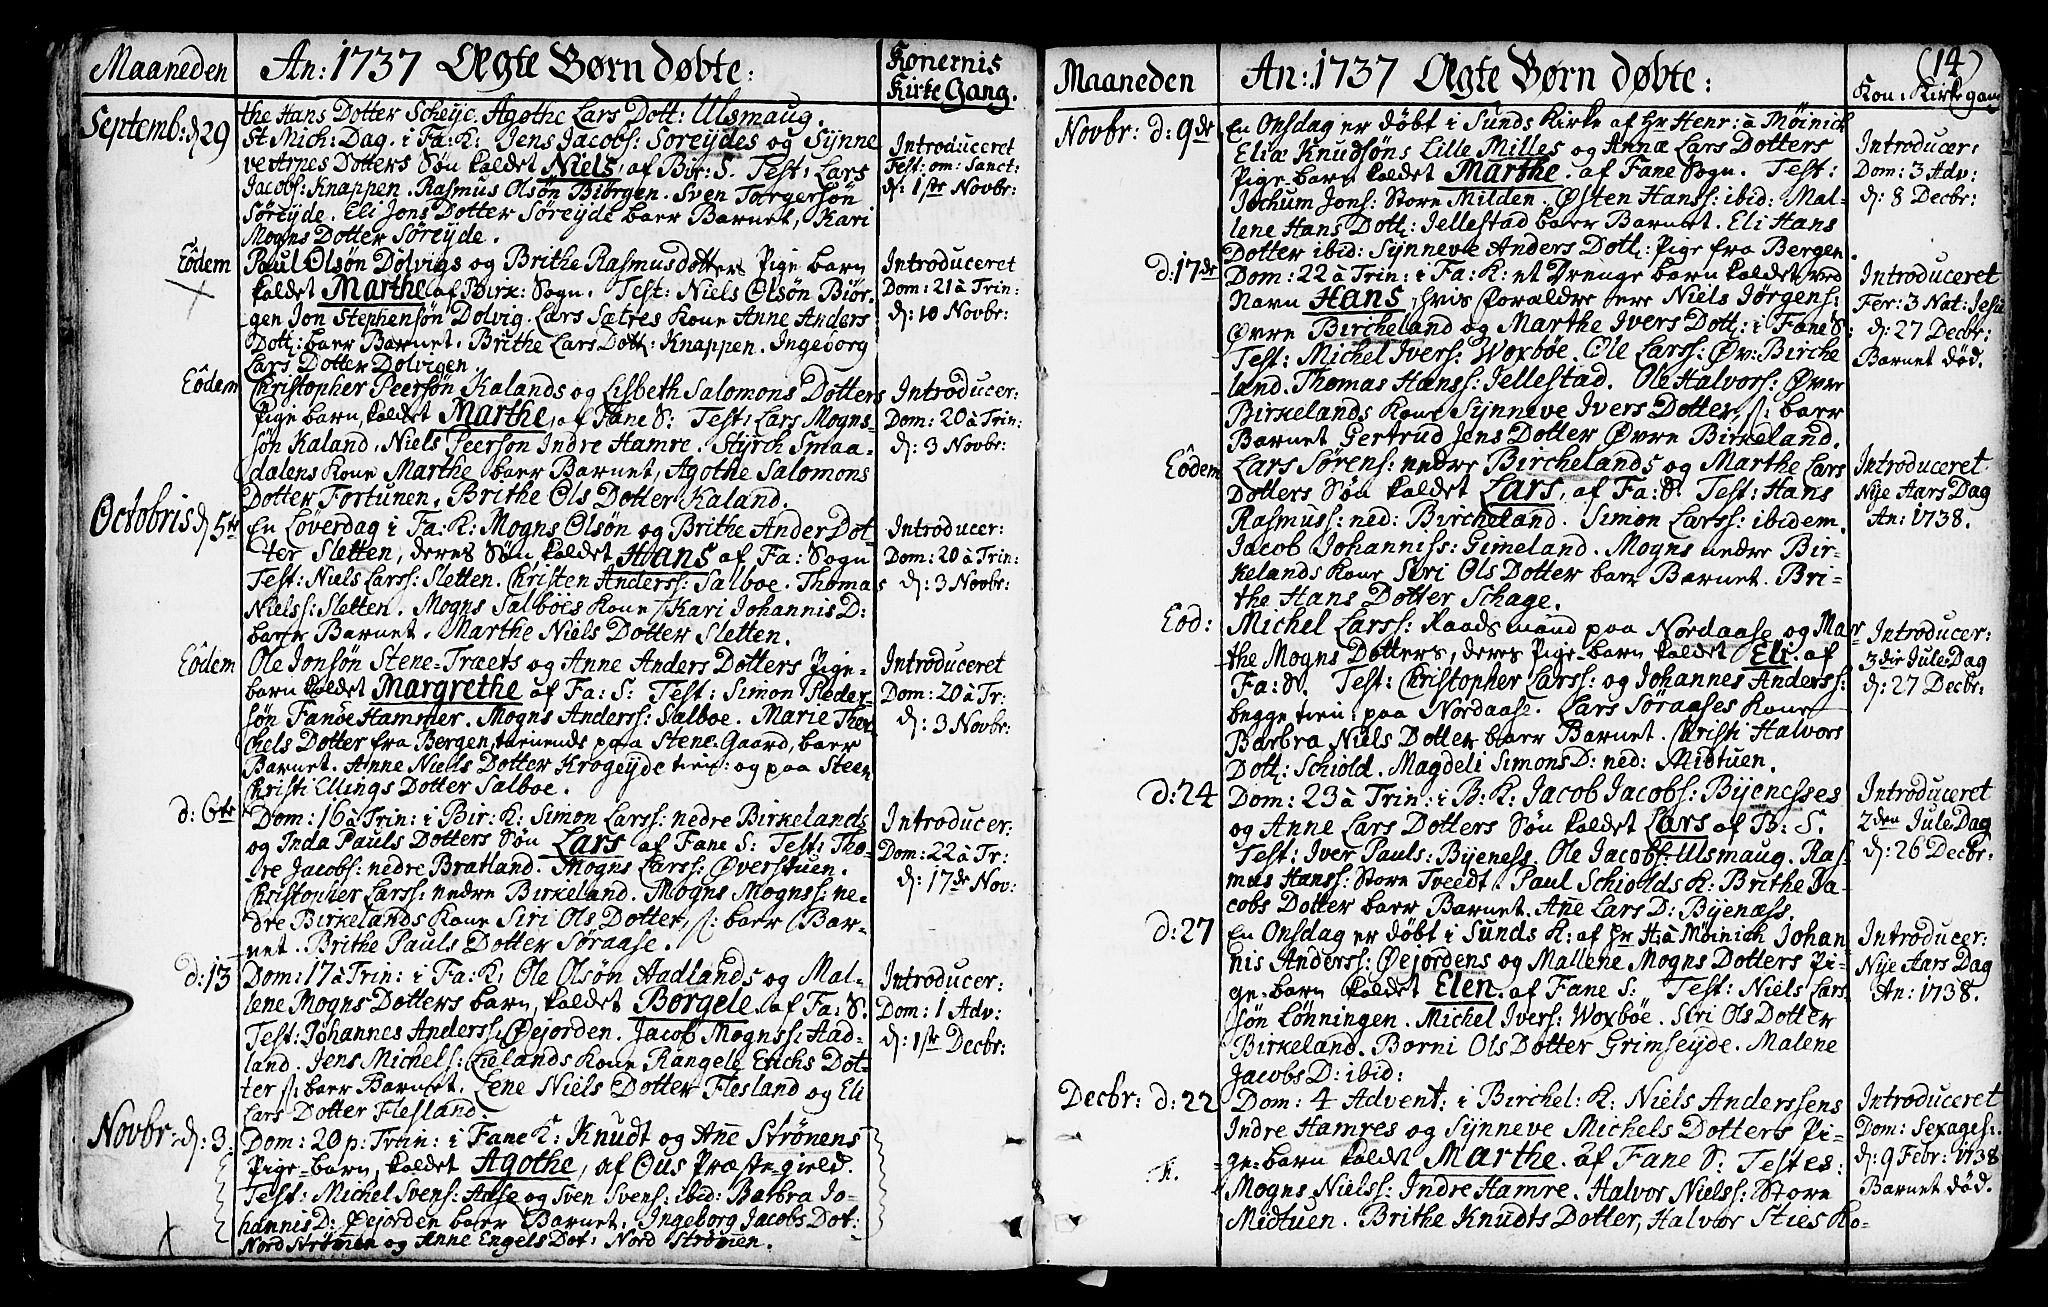 Maaneden
An: 1737 Ægte Børn døbte:
Konernis
Kirke Gang.
the Hans Dotter Scheye. Agothe Lars Dott: Ulsmaug.
Septemb: d. 29
St Mich: Dag. i Fa: K: Jens Jacobs: Soreydes og Synne
ve Arnes Dotters Søn kaldet Niels, af Bir: S. Test: Lars
Jacobs: Knappen. Rasmus Olsøn Biörgen. Sven Torgersøn
Søreyde. Eli Jons Dotter Søreyde baer Barnet, Kari
Mogns Dotter Søreyde.
Introduceret
Fest: om: Sanct:
d: 1ste Novbr:
Eôdem
Paul Olsøn Dolvigs og Brithe Rasmusdotters Pige barn
kaldet Marthe af Birk: Sogn. Test: Niels Olsøn Biør-
gen Jon Stephensøn Dolvig. Lars Sætres Kone Anne Anders
Dott: baer Barnet. Brithe Lars Dott: Knappen. Ingeborg
Lars Dotter Dolvigen.
Introduceret
Dom: 21 à Trin:
d: 10 Novbr:
Eôdem
Christopher Peersøn Kalands og Lisbeth Salomons Dotters
Pige barn, kaldet Marthe, af Fane S: Test: Lars Mogns-
søn Kaland, Niels Peerson Indre Hamre. Styrck Smaa-
dalens Kone Marthe baer Barnet, Agothe Salomons
Dotter Fortunen. Brithe Ols Dotter Kaland.
Introducer:
Dom: 20 à Trin:
d: 3 Novbr:
Octobris d. 5te
En Løverdag i Fa: K: Mogns Olsøn og Brithe Ander Dot-
ter Sletten, deres Søn kaldet Hans af Fa: Sogn
Test: Niels Larss: Sletten. Christen Anderss: Salboe. Thomas
Nielss: Sletten. Mogns Salboes Kone Kari Johannis D:
baer Barnet. Marthe Niels Dotter Sletten.
Introducer:
Dom: 20 à Trin:
d: 3 Novbr:
Eôdem
Ole Jonsøn Stene-Træets og Anne Anders Dotters Pige-
barn kaldet Margrethe af Fa: S: Test: Simon Peder-
søn Fanøe Hammer. Mogns Anderss: Salboe. Marie Ther-
chels Dotter fra Bergen, tienende paa Stene-Gaard, baer
Barnet. Anne Niels Dotter Krogeyde tien: og paa Steen
Christi Ellings Dotter Salboe.
Introduceret
Dom: 20 à Tr:
d: 3 Novbr:
d: 6te
Dom: 16 à Trin: i Bir: K: Simon Larss: nedre Birkelands
og Inda Pauls Dotters Søn Lars af Fane S: Test: Tho-
re Jacobs: nedre Bratland. Mogns Larss: Øverstuen.
Christopher Larss: nedre Birkeland. Mogns Mognss: ne-
dre Birkelands Kone Siri Ols Dotter, baer Bar-
net. Brithe Pauls Dotter Søraase.
Introducer:
Dom: 22 à Tr:
d: 17de Nov:
d: 13
Dom: 17 à Trin: i Fa: K: Ole Olsøn Aadlands og Mal-
lene Mogns Dotters barn, kaldet Borgele af Fa: S.
Test: Johannes Anderss: Øejorden. Jacob Mognss: Aad-
land. Jens Michels: Lielands Kone Rangele Erichs Dot-
ter baer Barnet. Lene Niels Dotter Flesland og Eli
Lars Dotter Flesland.
Introducer:
Dom: 1 Adv:
d: 1ste Decbr:
Novbr: d: 3.
Dom: 20 p: Trin: i Fane K: Knudt og Añe Strønens
Pige-barn, kaldet Agothe, af Ous Præste-gield.
Test: Michel Svens: Aase og Sven Svens: ibid: Barbra Jo-
hannis D: Øejorden baer Barnet. Ingeborg Jacobs Dot:
Nord Strømen og Anne Engels Dot: Nord Strømen.
Maaneden
An: 1737 Ægte Børn døbte:
(14)
Kon: Kirkegang
Novbr: d: 9de
En Onsdag er døbt i Sunds Kirke af Hr Henr: à Møinick
Eliæ Knudsøns Lille Milles og Annæ Lars Dotters
Pige-barn kaldet Marthe. af Fane Sogn. Test:
Jochum Jons: Store Milden. Østen Hanss: ibid: Mal-
lene Hans Dott: Jellestad baer Barnet. Eli Hans
Dotter ibid: Synneve Anders Dott: Pige fra Bergen.
Introducer:
Dom: 3 Adv:
d: 8 Decbr:
d: 17de
Dom: 22 à Trin: i Fa: K: et Drenge barn kaldet ved
Navn Hans, hvis Forældre ere Niels Jørgens:
Øvre Bircheland og Marthe Ivers Dott: i Fane S:
Test: Michel Ivers: Woxbøe. Ole Larss: Øv: Birche
land. Thomas Hanss: Jellestad. Ole Halvors: Øvre
Birkelands Kone Synneve Ivers Dotter, baer
Barnet Gertrud Jens Dotter Øvre Birkeland.
Introduceret
Fer: 3 Nat: Jesu
d: 27 Decbr:
Barnet død.
Eôdem
Lars Sørens: nedre Birchelands og Marthe Lars
Dotters Søn kaldet Lars, af Fa: S. Test: Hans
Rasmuss: ned: Bircheland. Simon Larss: ibidem.
Jacob Johanniss: Gimeland. Mogns nedre Bir-
kelands Kone Siri Ols Dotter baer Barnet. Bri-
the Hans Dotter Schage.
Introduceret
Nye Aars Dag
An: 1738.
Eod:
Michel Larss: Raadsmand paa Nordaase og Mar-
the Mogns Dotters, deres Pige-barn kaldet Eli. af
Fa: S. Test: Christopher Larss: og Johannes Anderss:
begge tien: paa Nordaase. Lars Søraases Kone
Barbra Niels Dotter baer Barnet. Christi Halvors
Dott: Schiold. Magdeli Simons D: ned: Midtuen.
Introducer:
3die Jule Dag
d: 27 Decbr:
d: 24
Dom: 23 à Trin: i B: K: Jacob Jacobs: Byenesses
og Anne Lars Dotters Søn kaldet Lars af B: S.
Test: Iver Pauls: Byeness. Ole Jacobs: Ulsmaug. Ras-
mus Hanss: Store Tveedt. Paul Schiolds K: Brithe Ja-
cobs Dotter baer Barnet. Añe Lars D: Byenæss.
Introduceret
2den Jule Dag
d: 26 Decbr:
d: 27
En Onsdag er døbt i Sunds K: af Hr H: à Møinick Johan-
nis Anderss: Øejordens og Mallene Mogns Dotters Pi-
ge-barn kaldet Elen. af Fane S: Test: Niels Lars-
søn Lønningen. Michel Ivers: Woxbøe. Siri Ols Dotter
Birkeland. Borni Ols Dotter Grimseyde. Malene
Jacobs D: ibid:
Introducer:
Nye Aars Dag
An: 1738.
Decbr: d: 22
Dom: 4 Advent: i Birchel: K: Niels Anderssens
Indre Hamres og Synneve Michels Dotters Pi-
ge-barn kaldet Marthe. af Fane S: Testes:
Mogns Nielss: Indre Hamre. Halvor Nielss: Store
Midtuen. Brithe Knudts Dotter, Halvor Sties Ko-
Introduceret
Dom: Sexages:
d: 9 Febr: 1738
Barnet død.